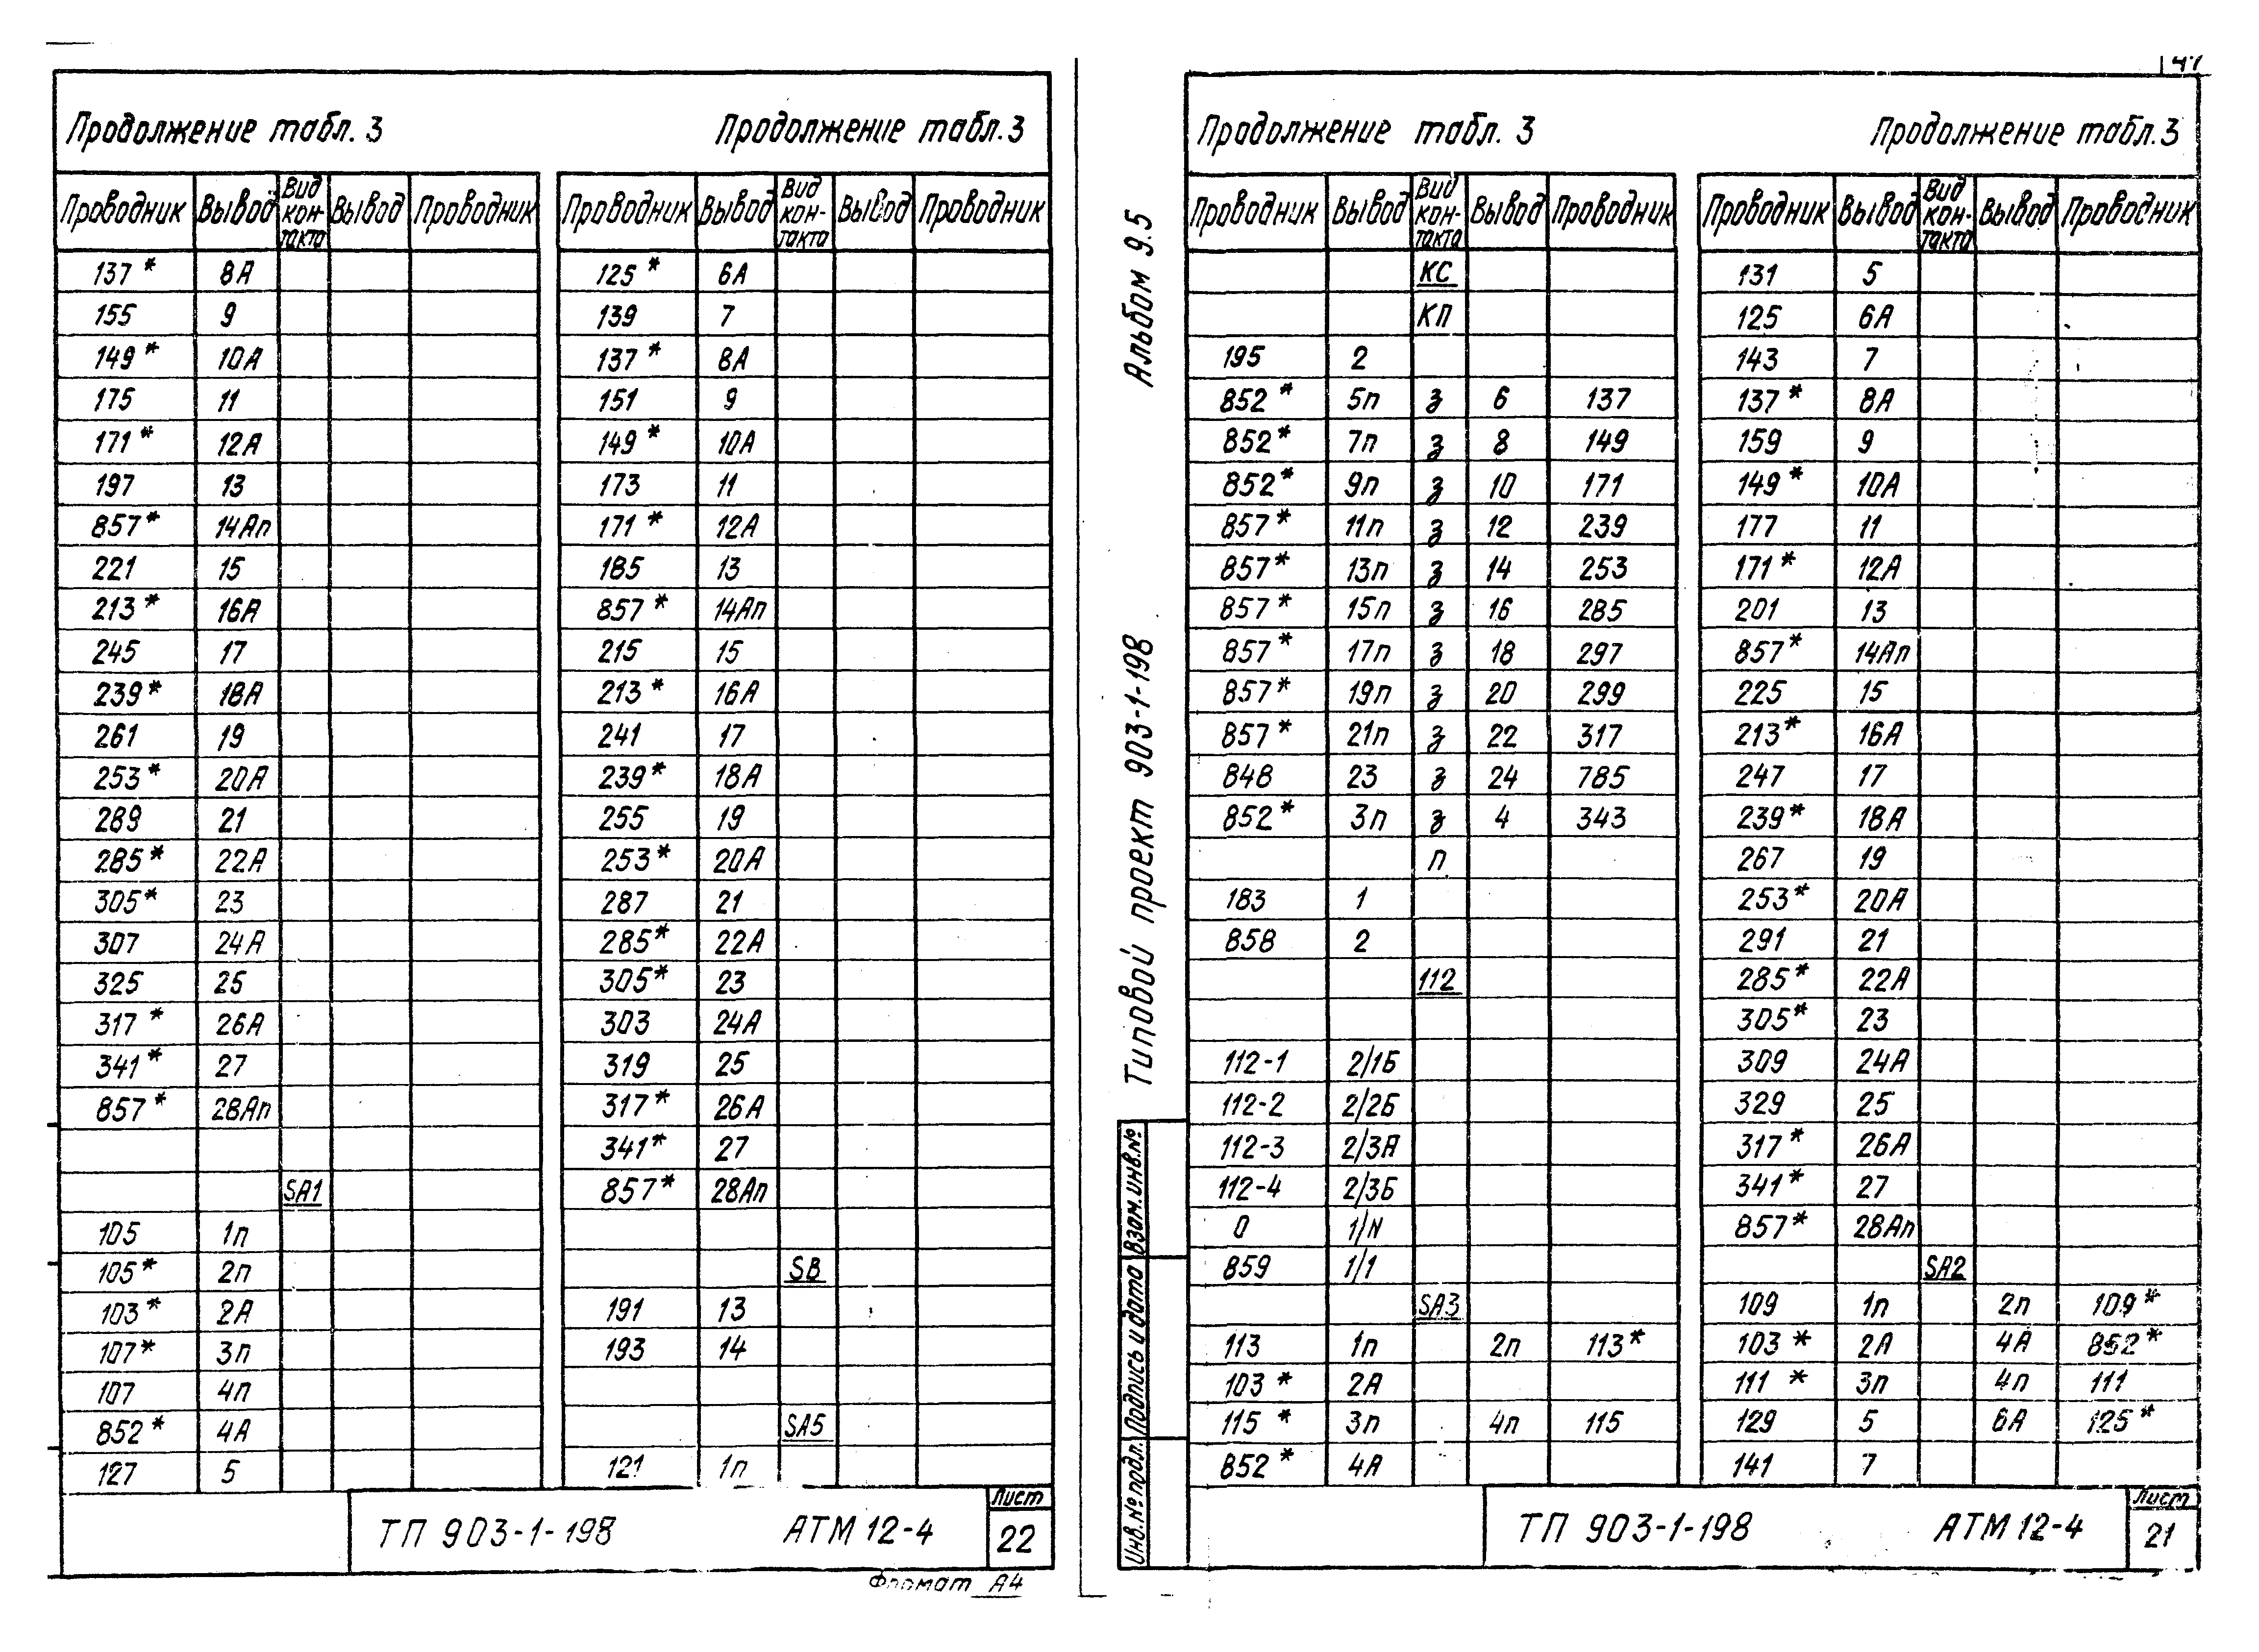 Продолжение табл. 3 Продолжение табл. 3
Проводник Вывод Вид кон-такта Вывод Проводник
137* 8А
155 9
149* 10А
175 11
171* 12А
197 13
857* 14Ап
221 15
213* 16А
245 17
239* 18А
261 19
253* 20А
289 21
285* 22А
305* 23
307 24А
325 25
317* 26А
341* 27
857* 28Ап
SA1
105 1п
105* 2п
103* 2А
107* 3п
107 4п
852* 4А
127 5
Проводник Вывод Вид кон-такта Вывод Проводник
125* 6А
139 7
137* 8А
151 9
149* 10А
173 11
171* 12А
185 13
857* 14Ап
215 15
213* 16А
241 17
239* 18А
255 19
253* 20А
287 21
285* 22А
305* 23
303 24А
319 25
317* 26А
341* 27
857* 28Ап
SB
191 13
193 14
SA5
121 1п
ТП 903-1-198 АТМ 12-4 Лист 22
Формат А4
Альбом 9.5
Типовой проект 903-1-198
Взам. инв. №
Подпись и дата
Инв. № подл.
Продолжение табл. 3 Продолжение табл. 3
Проводник Вывод Вид кон-такта Вывод Проводник
КС
КП
195 2
852* 5п з 6 137
852* 7п з 8 149
852* 9п з 10 171
857* 11п з 12 239
857* 13п з 14 253
857* 15п з 16 285
857* 17п з 18 297
857* 19п з 20 299
857* 21п з 22 317
848 23 з 24 785
852* 3п з 4 343
п
183 1
858 2
112
112-1 2/1Б
112-2 2/2Б
112-3 2/3А
112-4 2/3Б
0 1/N
859 1/1
SA3
113 1п 2п 113*
103* 2А
115* 3п 4п 115
852* 4А
Проводник Вывод Вид кон-такта Вывод Проводник
131 5
125 6А
143 7
137* 8А
159 9
149* 10А
177 11
171* 12А
201 13
857* 14Ап
225 15
213* 16А
247 17
239* 18А
267 19
253* 20А
291 21
285* 22А
305* 23
309 24А
329 25
317* 26А
341* 27
857* 28Ап
SA2
109 1п 2п 109*
103* 2А 4А 852*
111* 3п 4п 111
129 5 6А 125*
141 7
ТП 903-1-198 АТМ 12-4 Лист 21